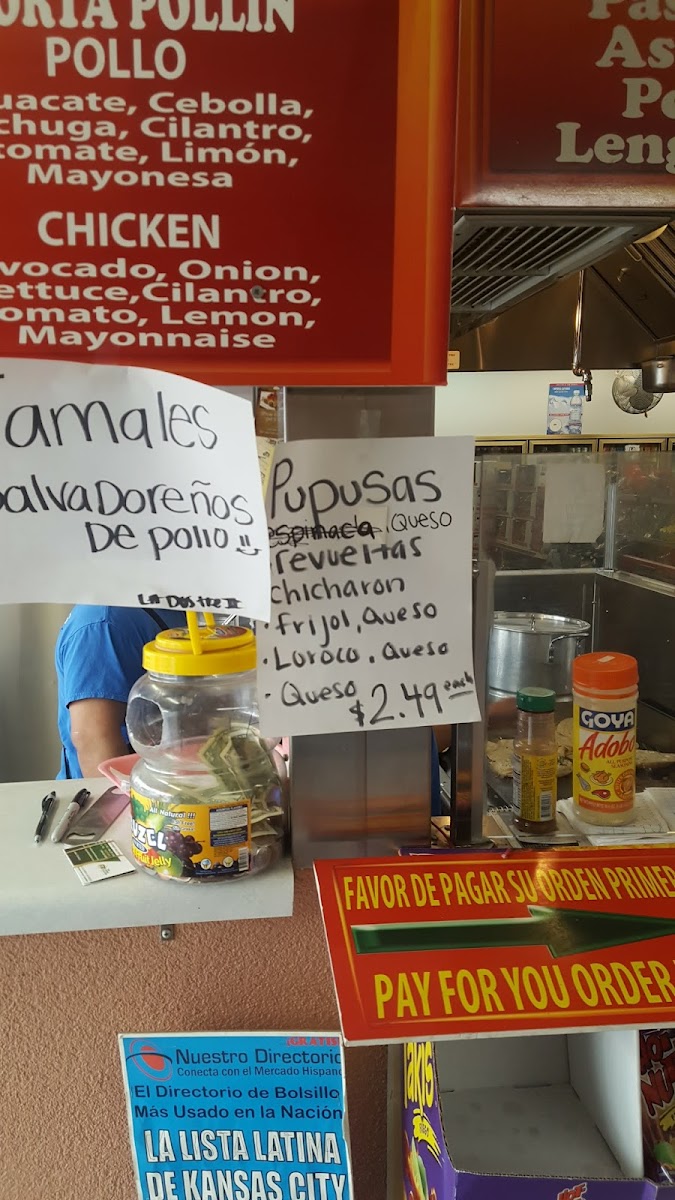 POLLIN
POLLO
Cebolla,
Cilantro,
Limón,
Mayonesa
CHICKEN
Onion,
Cilantro,
Lemon,
Mayonnaise
Tamales
SalvaDoreños
De pollo
Pupusas
espinaca, Queso
• revueltas
chicharon
• frijol, Queso
• Loroco, Queso
• Queso
$2.49 each
GOYA
Adobo
All Natural!!!
FAVOR DE PAGAR SU ORDEN
PAY FOR YOU ORDER
GRATIS
Nuestro Directorio
Conecta con el Mercado Hispano
El Directorio de Bolsillo
Más Usado en la Nación
LA LISTA LATINA
DE KANSAS CITY